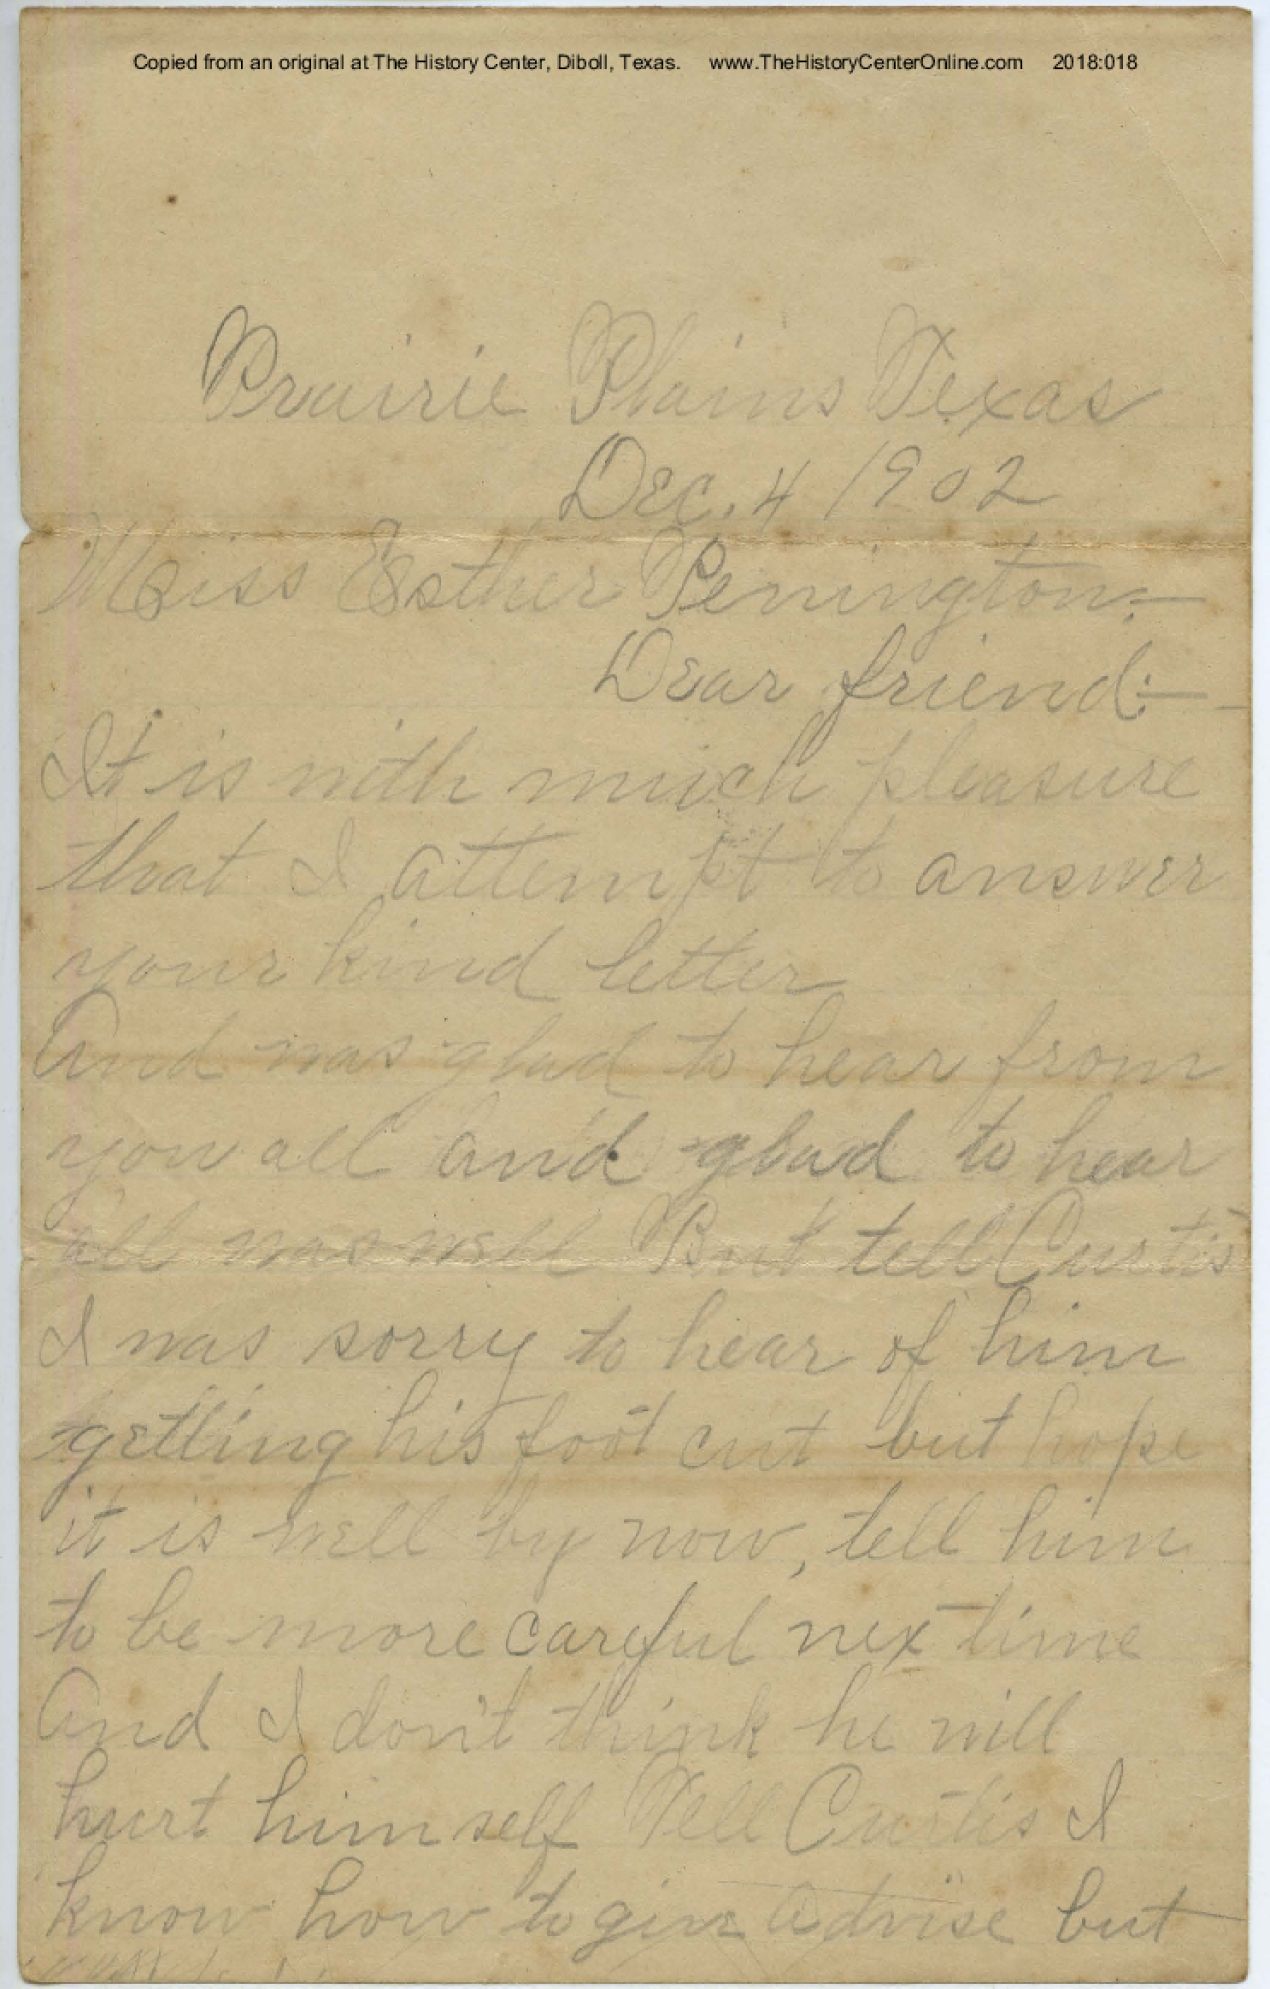 Copied from an original at The History Center, Diboll, Texas. www.TheHistoryCenterOnline.com 2018:018
Prairie Plains Texas
Dec. 4 1902
Miss Esther Penington:—
Dear friend:—
It is with much pleasure
that I attempt to answer
your kind letter
And was glad to hear from
you all and glad to hear
all was well But tell Curtis
I was sorry to hear of him
getting his foot cut but hope
it is well by now, tell him
to be more careful nex time
And I don't think he will
hurt himself Tell Curtis I
know how to give advise but